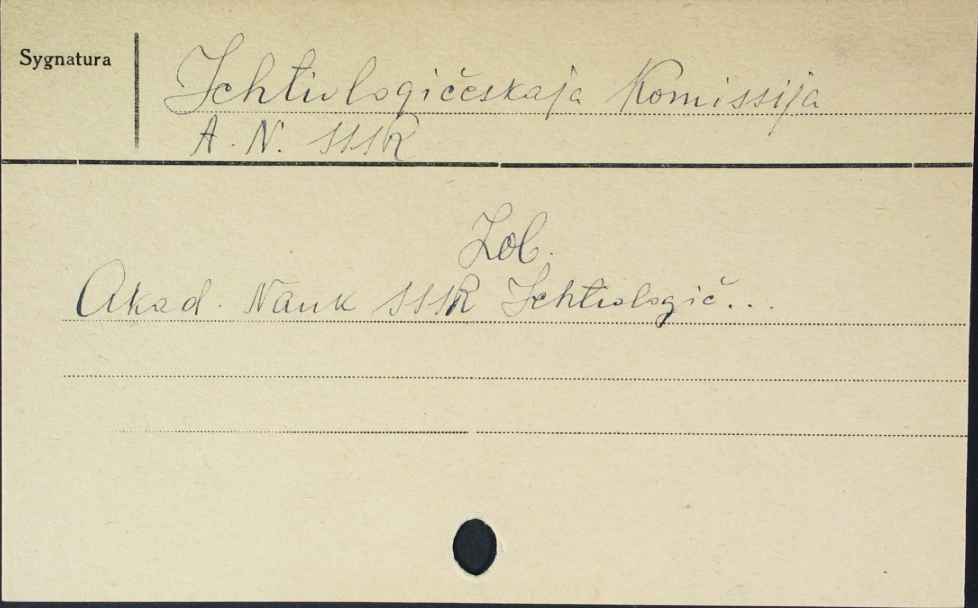 Sygnatura
Ichtiologičeskaja Komissija
A. N. SSSR
Zob.
Akad. Nauk SSSR Ichtiologič...